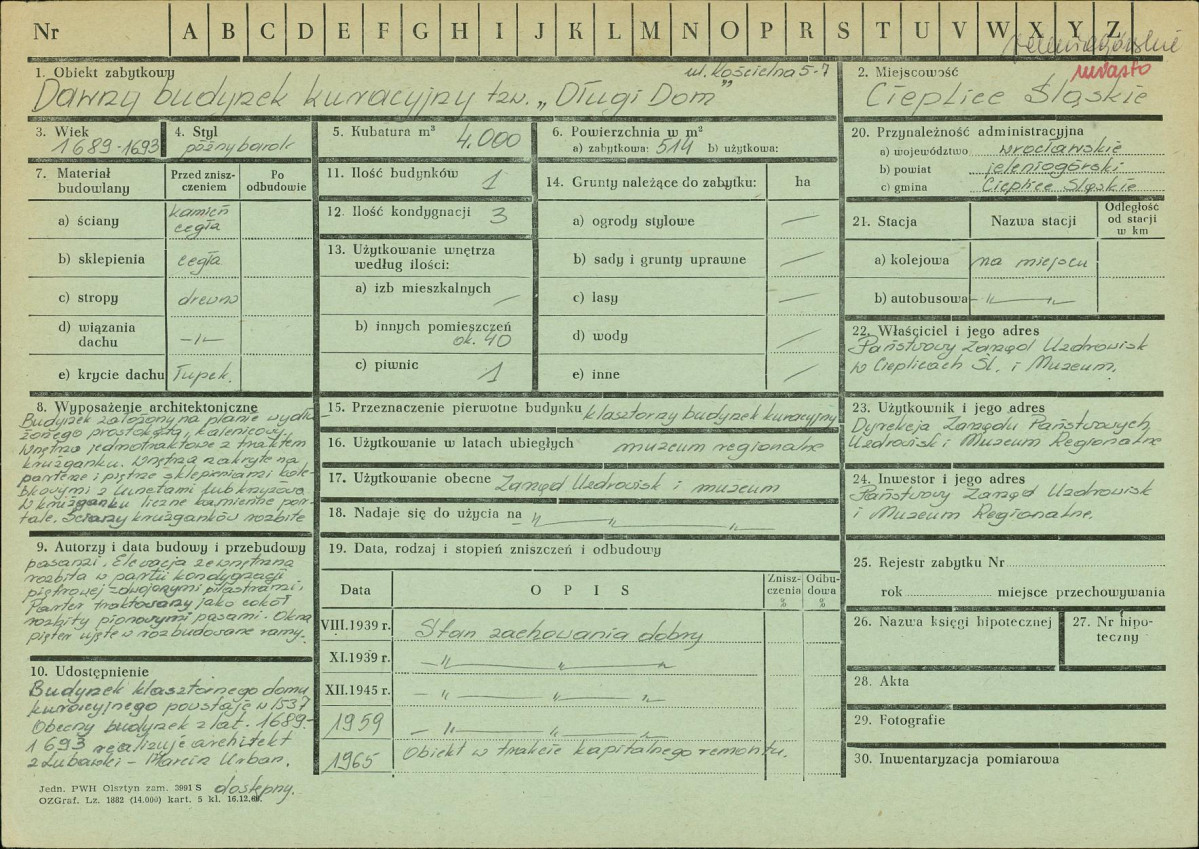 Nr A B C D E F G H I J K L M N O P R S T U V W X Y Z
jeleniogórskie
1. Obiekt zabytkowy
ul. Kościelna 5-7
Dawny budynek kuracyjny tzw. „Długi Dom”
2. Miejscowość
miasto
Cieplice Śląskie
3. Wiek
1689-1693
4. Styl
późny barok
5. Kubatura m³
4.000
6. Powierzchnia w m²
a) zabytkowa: 514 b) użytkowa:
7. Materiał budowlany
Przed zniszczeniem
Po odbudowie
a) ściany kamień
cegła
b) sklepienia cegła
c) stropy drewno
d) wiązania
dachu -„-
e) krycie dachu Łupek.
11. Ilość budynków 1
12. Ilość kondygnacji 3
13. Użytkowanie wnętrza
według ilości:
a) izb mieszkalnych —
b) innych pomieszczeń
ok. 40
c) piwnic 1
14. Grunty należące do zabytku: ha
a) ogrody stylowe —
b) sady i grunty uprawne —
c) lasy —
d) wody —
e) inne —
20. Przynależność administracyjna
a) województwo wrocławskie
b) powiat jeleniogórski
c) gmina Cieplice Śląskie
21. Stacja
Nazwa stacji
Odległość
od stacji
w km
a) kolejowa na miejscu
b) autobusowa -„- -„-
22. Właściciel i jego adres
Państwowy Zarząd Uzdrowisk
w Cieplicach Śl. i Muzeum.
8. Wyposażenie architektoniczne
Budynek założony na planie wydłu
żonego prostokąta, kalenicowy
Wnętrze jednotraktowe z traktem
krużganku. Wnętrza nakryte na
parterze i piętrze sklepieniami kole-
bkowymi z lunetami lub krzyżowo
W krużganku liczne kamienne por-
tale. Ściany krużganków rozbite
9. Autorzy i data budowy i przebudowy
pasami. Elewacja zewnętrzna
rozbita w partii kondygnacji
piętrowej zdwojonymi pilastrami.
Parter traktowany jako cokół
rozbity pionowymi pasami. Okna
pięter ujęte w rozbudowane ramy.
10. Udostępnienie
Budynek klasztornego domu
kuracyjnego powstaje w 1537
Obecny budynek z lat. 1689-
1693 realizuje architekt
z Lubawki - Marcin Urban.
dostępny.
15. Przeznaczenie pierwotne budynku klasztorny budynek kuracyjny
16. Użytkowanie w latach ubiegłych muzeum regionalne
17. Użytkowanie obecne Zarząd Uzdrowisk i muzeum
18. Nadaje się do użycia na -„- -„-
19. Data, rodzaj i stopień zniszczeń i odbudowy
Data
O P I S
Znisz-
czenia
%
Odbu-
dowa
%
VIII.1939 r. Stan zachowania dobry
XI.1939 r. -„- „ „
XII.1945 r. -„- „ „
1959 -„- „ „
1965 Obiekt w trakcie kapitalnego remontu.
23. Użytkownik i jego adres
Dyrekcja Zarządu Państwowych
Uzdrowisk i Muzeum Regionalne
24. Inwestor i jego adres
Państwowy Zarząd Uzdrowisk
i Muzeum Regionalne.
25. Rejestr zabytku Nr
rok miejsce przechowywania
26. Nazwa księgi hipotecznej
27. Nr hipo-
teczny
28. Akta
29. Fotografie
30. Inwentaryzacja pomiarowa
Jedn. PWH Olsztyn zam. 3991 S
OZGraf. Lz. 1882 (14.000) kart. 5 kl. 16.12.